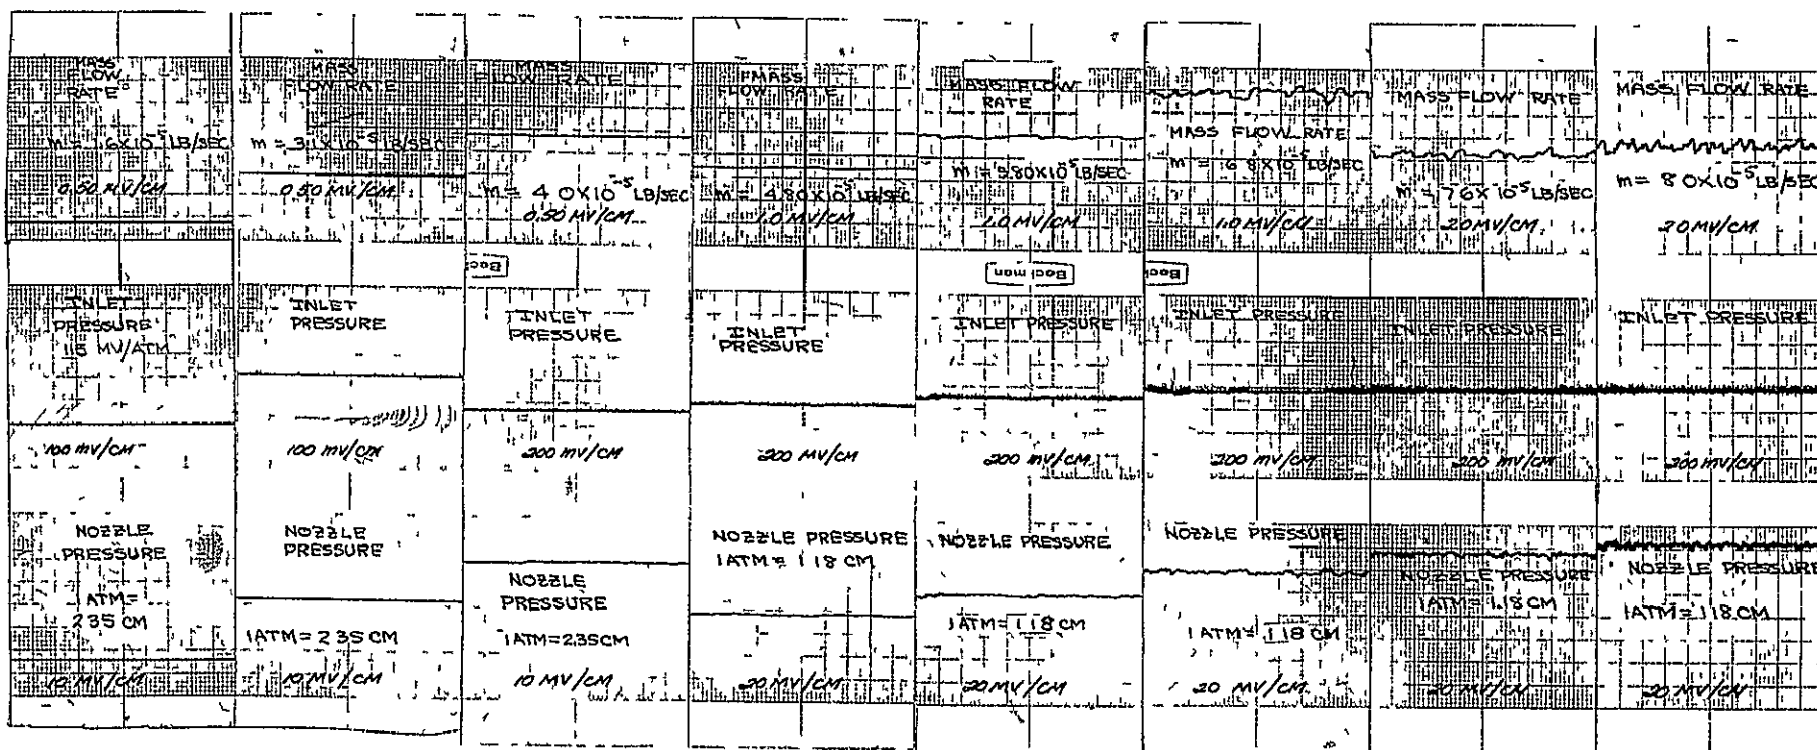 MASS
FLOW
RATE
m = 1.6X10⁻⁵ LB/SEC
0.50 MV/CM
INLET
PRESSURE
15 MV/ATM
100 MV/CM
NOZZLE
PRESSURE
ATM=
235 CM
10 MV/CM
MASS
FLOW RATE
m = 3.1X10⁻⁵ LB/SEC
0.50 MV/CM
INLET
PRESSURE
100 MV/CM
NOZZLE
PRESSURE
1ATM=235CM
10 MV/CM
MASS
FLOW RATE
m = 4.0X10⁻⁵ LB/SEC
0.50 MV/CM
INLET
PRESSURE
200 MV/CM
NOZZLE
PRESSURE
1ATM=2.35CM
10 MV/CM
MASS
FLOW RATE
m = 4.80X10⁻⁵ LB/SEC
1.0 MV/CM
INLET
PRESSURE
200 MV/CM
NOZZLE PRESSURE
1ATM= 1 18 CM
20 MV/CM
MASS FLOW
RATE
m = 5.80X10⁻⁵ LB/SEC
1.0 MV/CM
INLET PRESSURE
200 MV/CM
NOZZLE PRESSURE
1ATM= 1 18 CM
20 MV/CM
MASS FLOW RATE
m = 6 8X10⁻⁵ LB/SEC
1.0 MV/CM
INLET PRESSURE
200 MV/CM
NOZZLE PRESSURE
1ATM= 1 18 CM
20 MV/CM
MASS FLOW RATE
m = 76X10⁻⁵ LB/SEC
20MV/CM
INLET PRESSURE
200 MV/CM
NOZZLE PRESSURE
1ATM= 1.18 CM
20 MV/CM
MASS FLOW RATE
m= 8 0X10⁻⁵ LB/SEC
20MV/CM
INLET PRESSURE
200 MV/CM
NOZZLE PRESSURE
1ATM=118CM
20 MV/CM